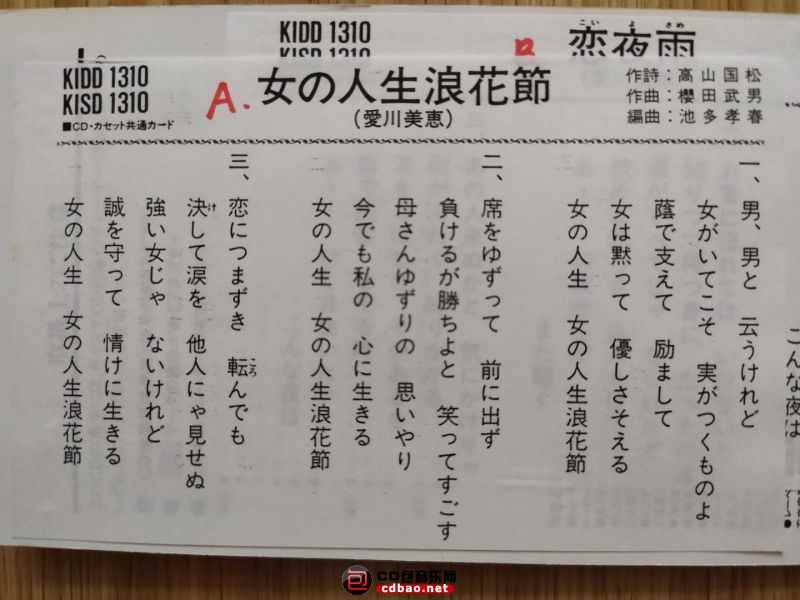 KIDD 1310
KISD 1310
恋夜雨
こい よ さめ
KIDD 1310
KISD 1310
■CD・カセット共通カード
A.
女の人生浪花節
(愛川美恵)
作詩：高山国松
作曲：櫻田武男
編曲：池多孝春
こんな夜は
一、男、男と 云うけれど
女がいてこそ 実がつくものよ
蔭で支えて 励まして
女は黙って 優しさそえる
女の人生 女の人生浪花節
二、席をゆずって 前に出ず
負けるが勝ちよと 笑ってすごす
母さんゆずりの 思いやり
今でも私の 心に生きる
女の人生 女の人生浪花節
三、恋につまずき 転んでも
ころ
決して涙を 他人にゃ見せぬ
け
強い女じゃ ないけれど
誠を守って 情けに生きる
女の人生 女の人生浪花節
CD包音乐网
cdbao.net